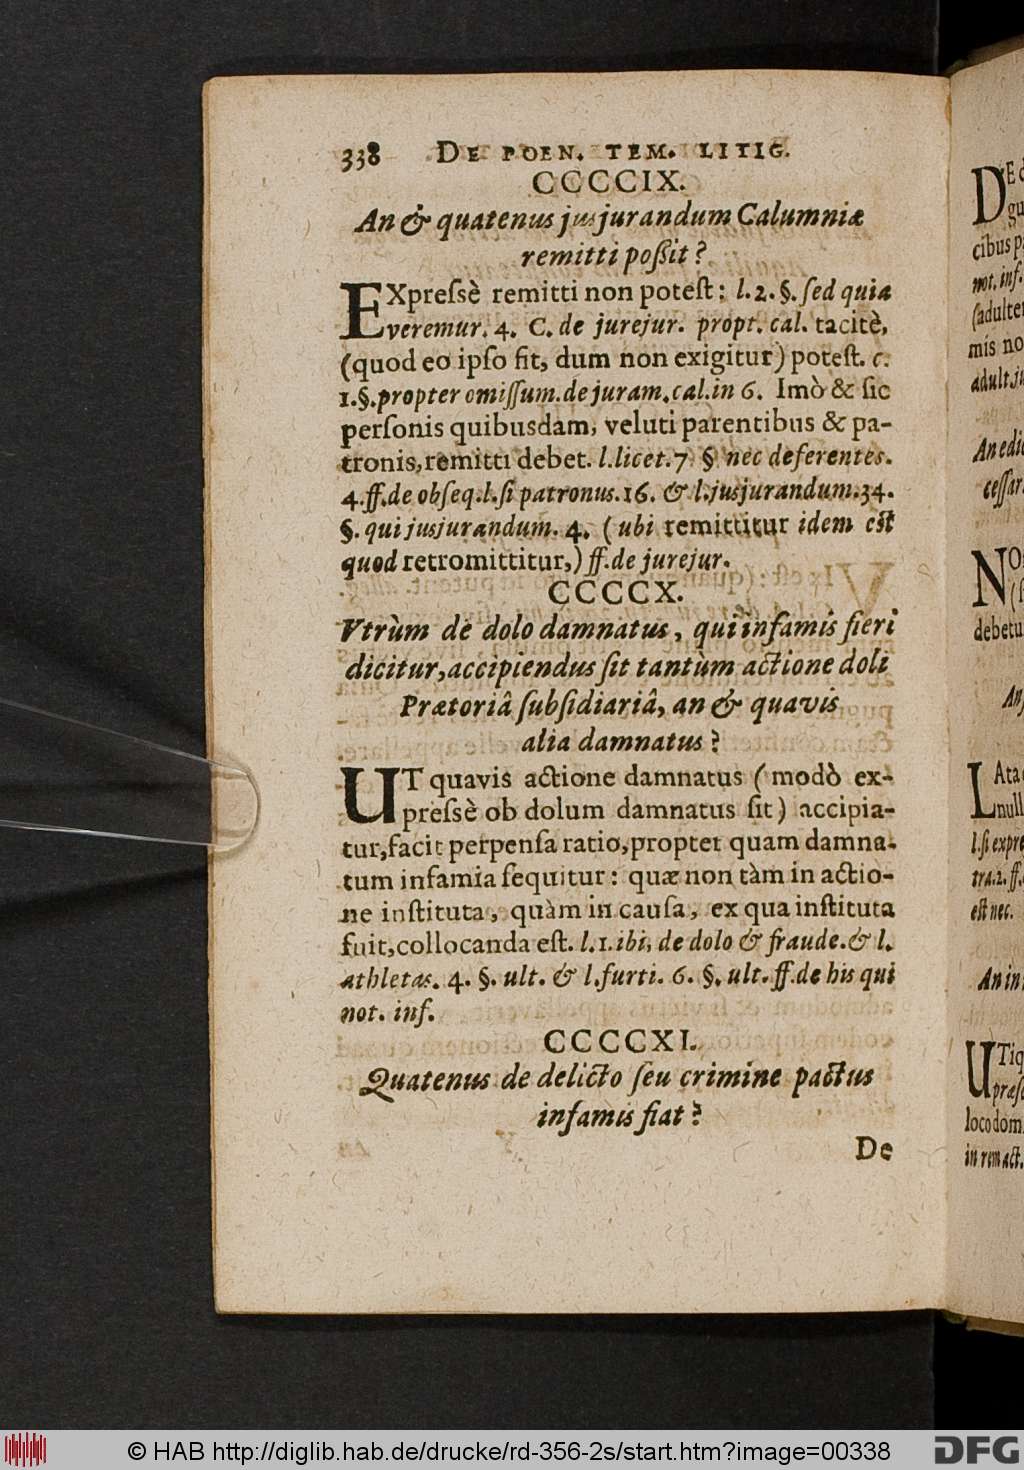 338 DE POEN. TEM. LITIG.
CCCCIX.
An & quatenus jusjurandum Calumniæ
remitti poßit?
EXpreſsè remitti non poteſt: l. 2. §. ſed quia
veremur. 4. C. de jurejur. propt. cal. tacitè,
(quod eo ipſo fit, dum non exigitur) poteſt. c.
1. §. propter omiſſum. de juram. cal. in 6. Imò & ſic
perſonis quibusdam, veluti parentibus & pa-
tronis, remitti debet. l. licet. 7 § nec deferentes.
4. ff. de obſeq. l. ſi patronus. 16. & l. jusjurandum. 34.
§. qui jusjurandum. 4. (ubi remittitur idem eſt
quod retromittitur,) ff. de jurejur.
CCCCX.
Vtrùm de dolo damnatus, qui infamis fieri
dicitur, accipiendus ſit tantùm actione doli
Prætoriâ ſubſidiariâ, an & quavis
alia damnatus?
UT quavis actione damnatus (modò ex-
preſsè ob dolum damnatus ſit) accipia-
tur, facit perpenſa ratio, propter quam damna-
tum infamia ſequitur: quæ non tàm in actio-
ne inſtituta, quàm in cauſa, ex qua inſtituta
fuit, collocanda eſt. l. 1. ibi, de dolo & fraude. & l.
athletas. 4. §. ult. & l. furti. 6. §. ult. ff. de his qui
not. inf.
CCCCXI.
Quatenus de delicto ſeu crimine pactus
infamis fiat?
De
DE
gu
cibus
not. inf.
(adulte
mis no
adult. ju
An edic
ceſſar
NO
debetu
An
L Ata
null
l. ſi expre
tra. 2. ff.
eſt nec.
An in
UTiq
præſc
loco dom
in rem act.
© HAB http://diglib.hab.de/drucke/rd-356-2s/start.htm?image=00338
DFG